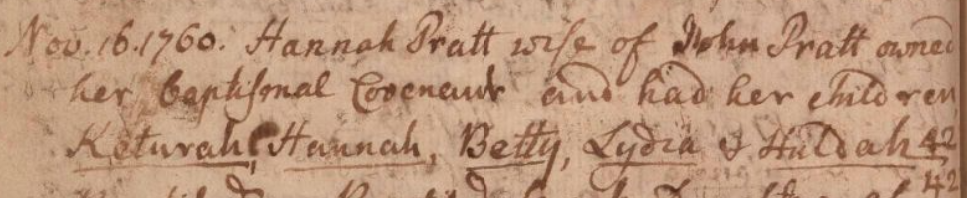 Nov. 16. 1760. Hannah Pratt wife of John Pratt owned
her baptismal Covenant and had her children
Keturah, Hannah, Betty, Lydia & Huldah 42
42